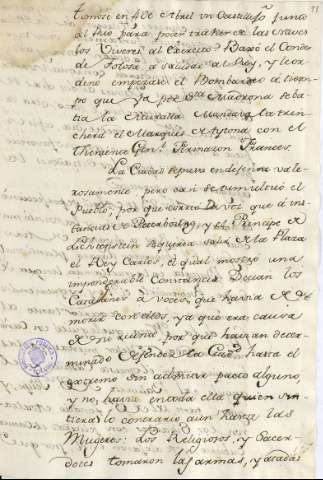 tomose en 4 de Abril un Castillejo junto
al Rio para poder traher de las Naves
los Viveres al Exercito Baxó el Conde
de Tolosa a saludar al Rey, y le or
denó empezase el Bombardeo à tiem
po que ya por Sta Madrona se ba
tia la Muralla Mandava la trin
chera el Marques de Aytona con el
Theniente Genl. Frances
La Ciudad se puso en defensa vale
rosamente pero casi se tumultuó el
Pueblo, por que corrió la voz que à ins
tancias de Peterboroug, y el Principe de
Lictestein queria salir de la Plaza
el Rey Carlos, el qual mostró una
imponderable Constancia Decian los
Catalanes à voces, que havia de
morir con ellos, ya que era causa
de su ruina, por que havian deter
minado defender la Ciud. hasta el
extremo sin admitir pacto alguno
y no, havia en toda ella quien sin
tiera lo contrario aun hasta las
Mugeres: Los Religiosos, y Sacer
dotes tomaron las armas, y